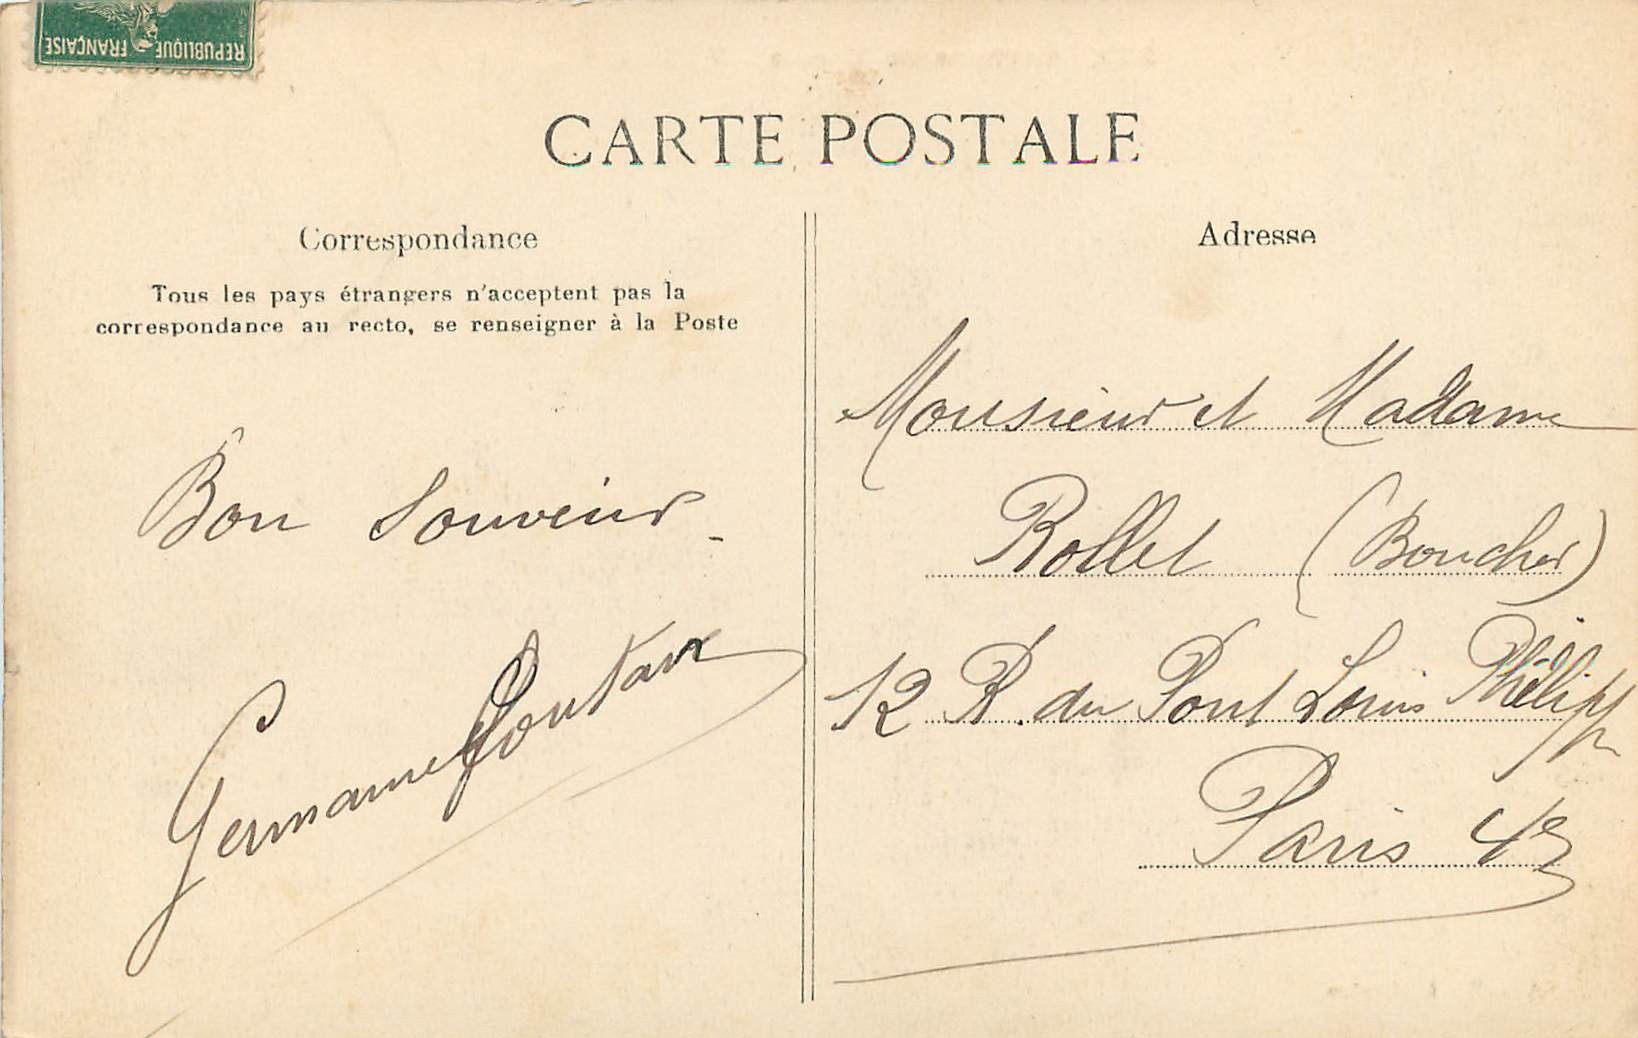 REPUBLIQUE FRANÇAISE
CARTE POSTALE
Correspondance
Tous les pays étrangers n'acceptent pas la
correspondance au recto, se renseigner à la Poste
Bon Souvenir
Germaine
Adresse
Monsieur et Madame
Rollet (Boucher)
12 R. du Pont Louis Philipp
Paris 4e